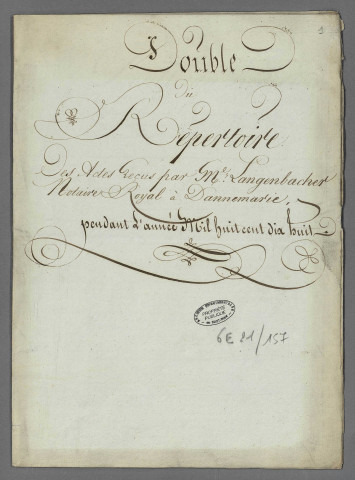 Double
du
Répertoire
Des Actes Reçus par Me. Langenbacher
Notaire Royal à Dannemarie.
pendant L'année Mil huit cent dix huit
PROPRIÉTÉ
PUBLIQUE
6E 21/157